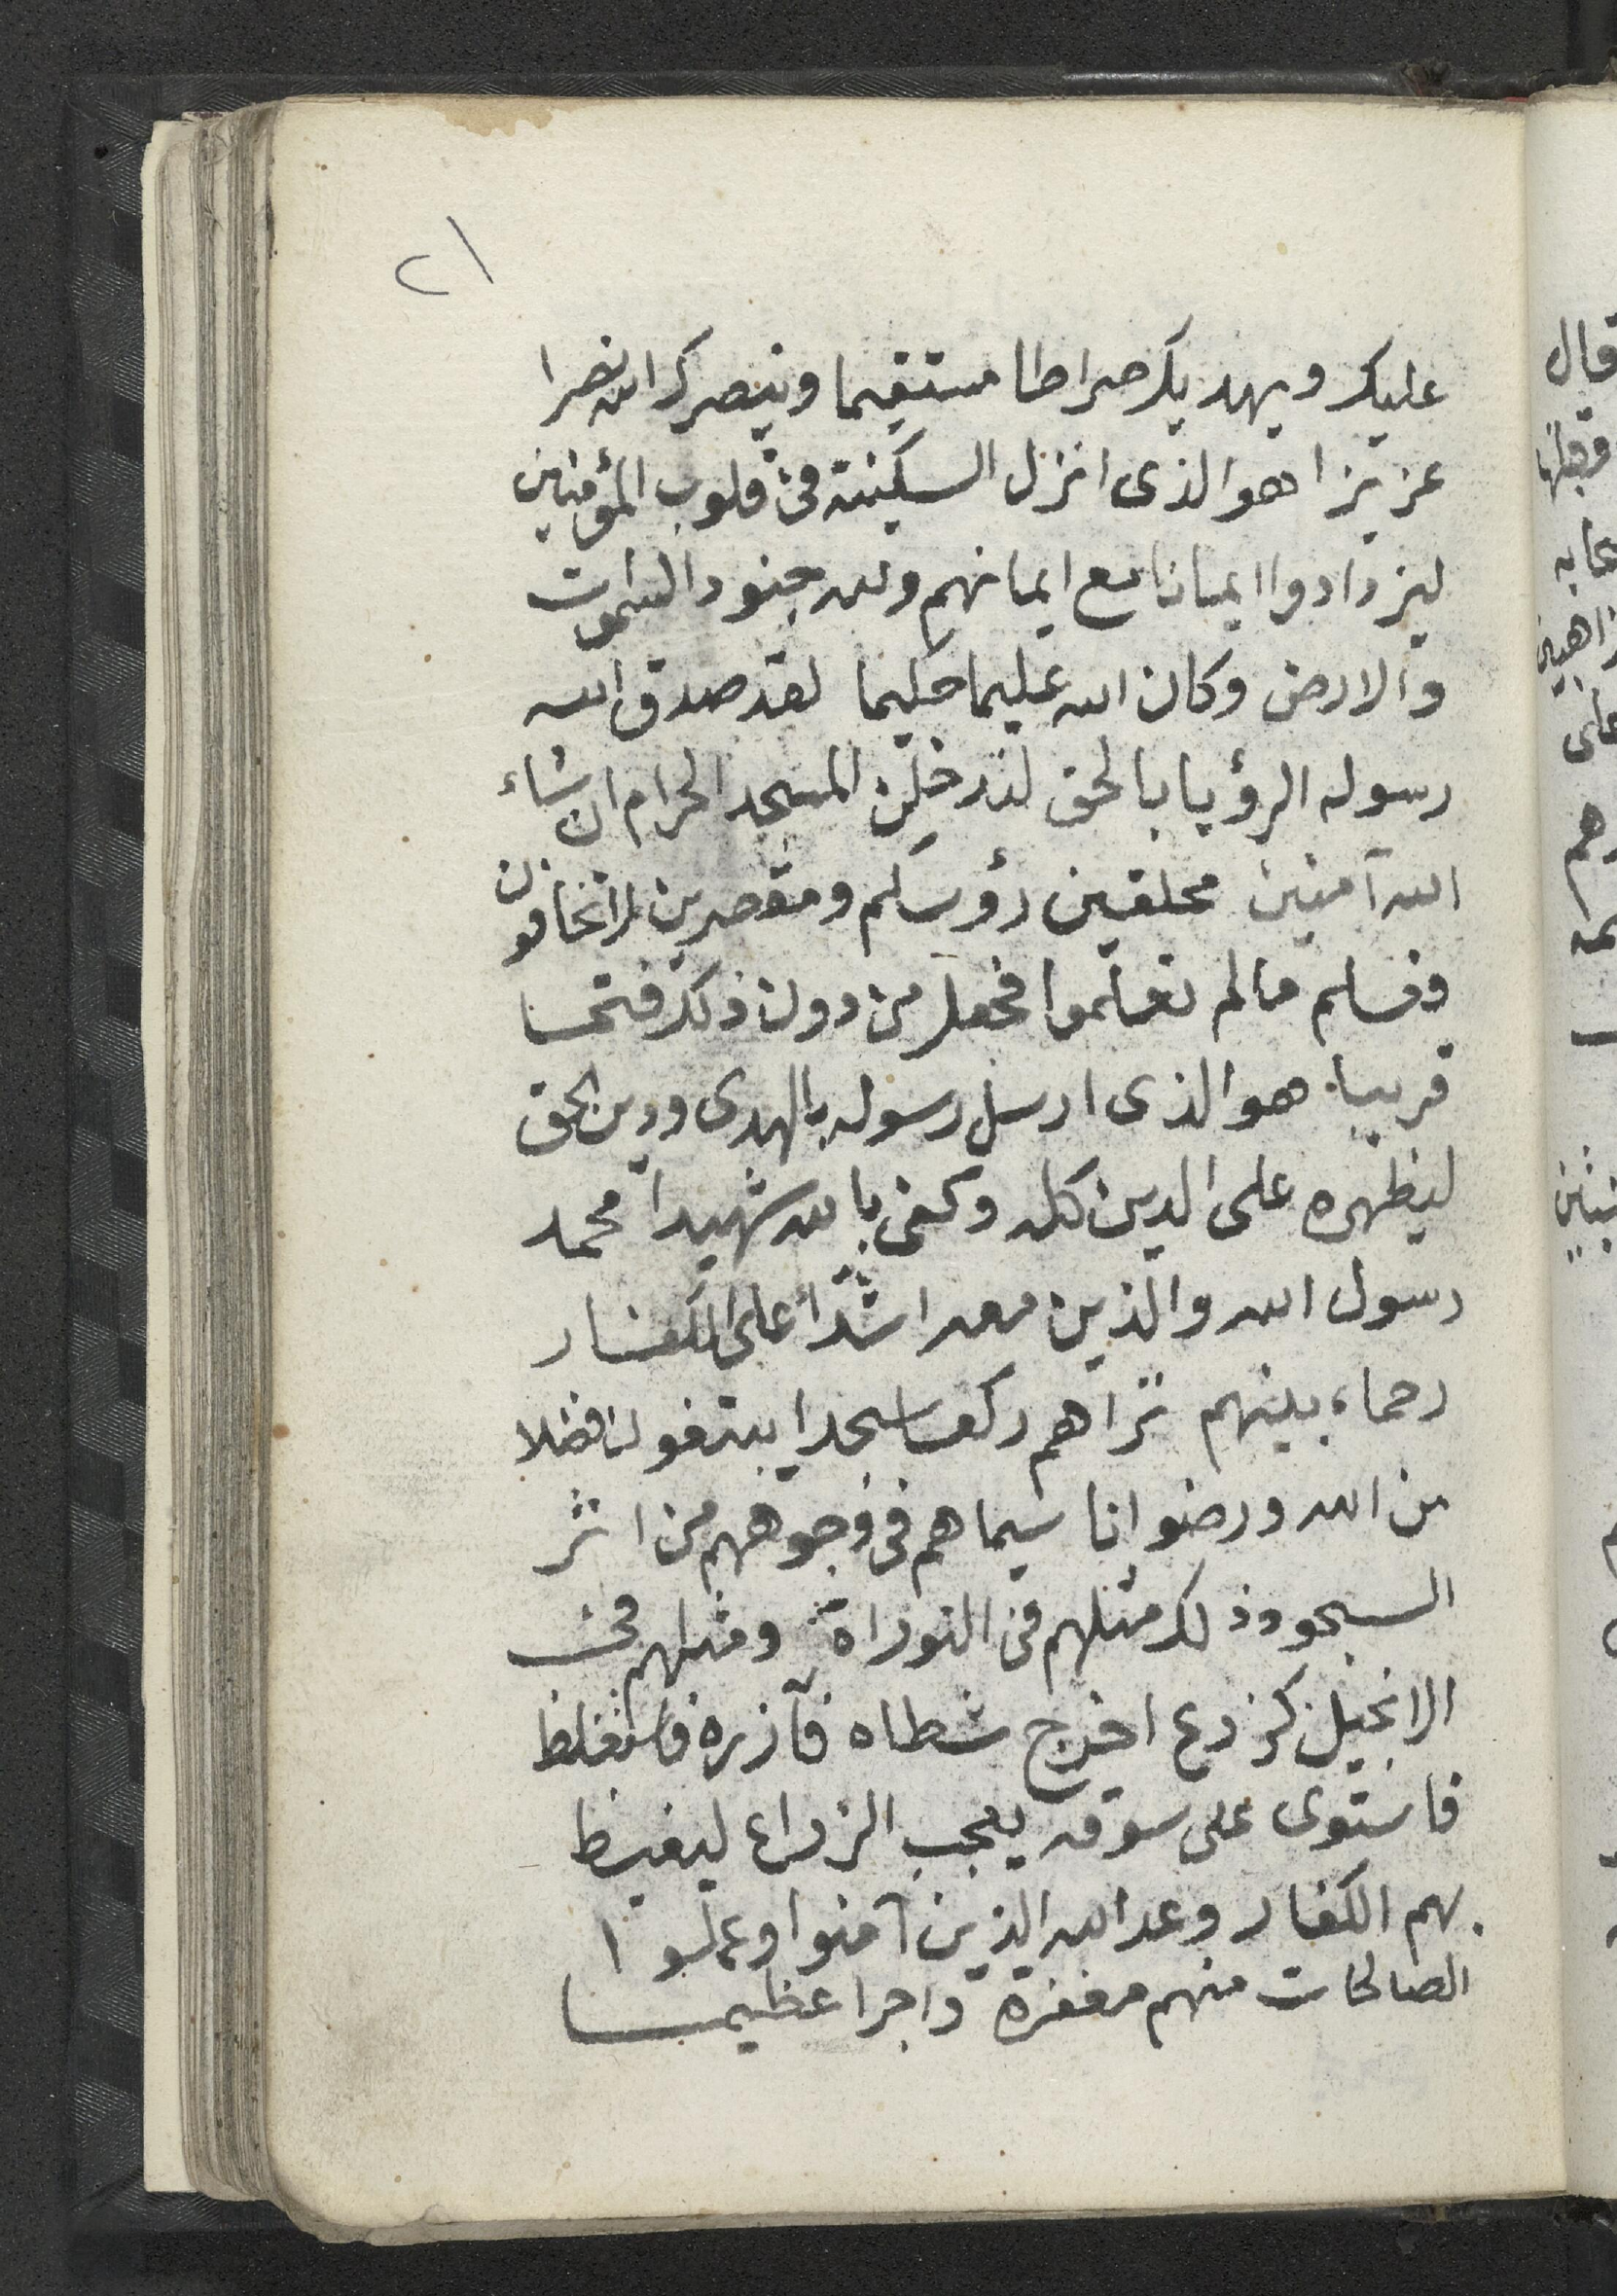 ٢١
عليك ويهديك صراطا مستقيما وينصرك الله نصرا
عزيزا هو الذى انزل السكينة فى قلوب المؤمنين
ليزدادوا ايمانا مع ايمانهم ولله جنود السموات
والارض وكان الله عليما حكيما لقد صدق الله
رسوله الرؤيا بالحق لتدخلن المسجد الحرام ان شاء
الله آمنين محلقين رؤسكم ومقصرين لا تخافون
فعلم ما لم تعلموا فجعل من دون ذلك فتحا
قريبا هو الذى ارسل رسوله بالهدى ودين الحق
ليظهره على الدين كله وكفى بالله شهيدا محمد
رسول الله والذين معه اشدأ على الكفار
رحماء بينهم تراهم ركعا سجدا يبتغون فضلا
من الله ورضوانا سيماهم فى وجوههم من اثر
السجود ذلك مثلهم فى التوراة ومثلهم فى
الانجيل كزرع اخرج شطاه فآزره فاستغلظ
فاستوى على سوقه يعجب الزراع ليغيظ
بهم الكفار وعد الله الذين آمنوا وعملوا
الصالحات منهم مغفرة واجرا عظيما
قال
على